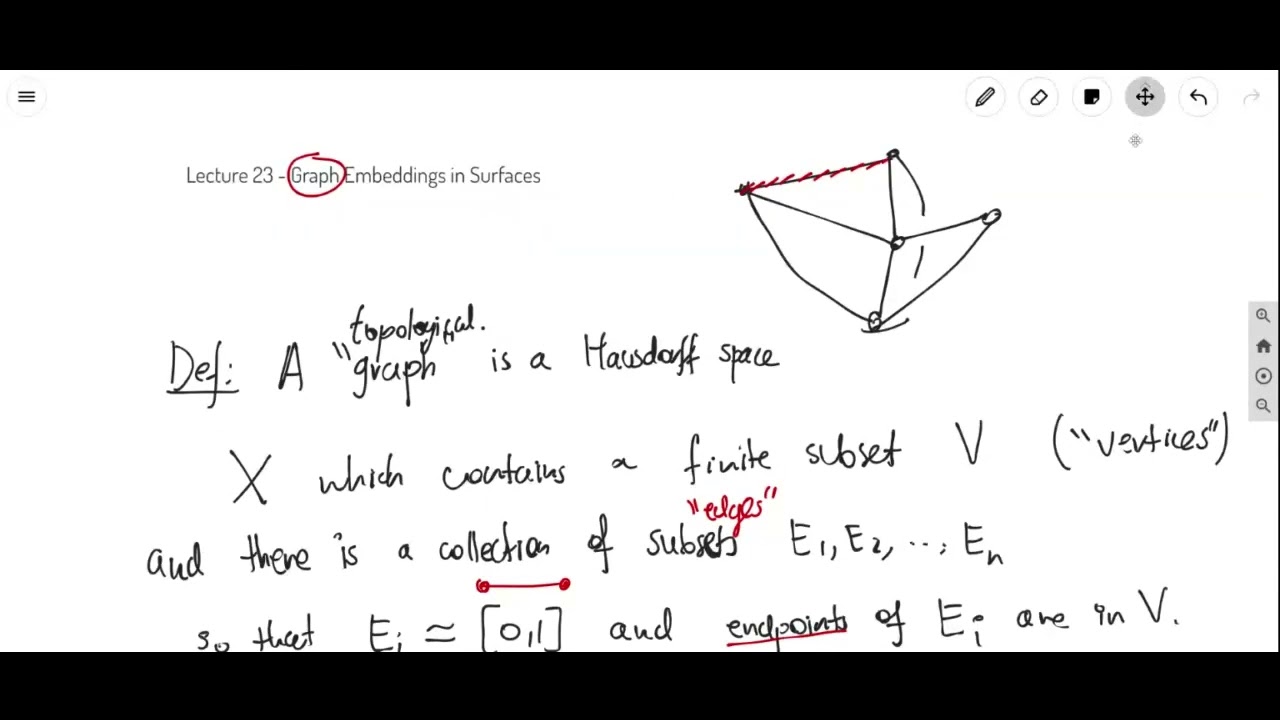 Lecture 23 - Graph Embeddings in Surfaces
topological.
Def: A "graph is a Hausdorff space
X which contains a finite subset V ("vertices")
"edges"
and there is a collection of subsets E1, E2, ..., En
so that Ei ≃ [0,1] and endpoints of Ei are in V.